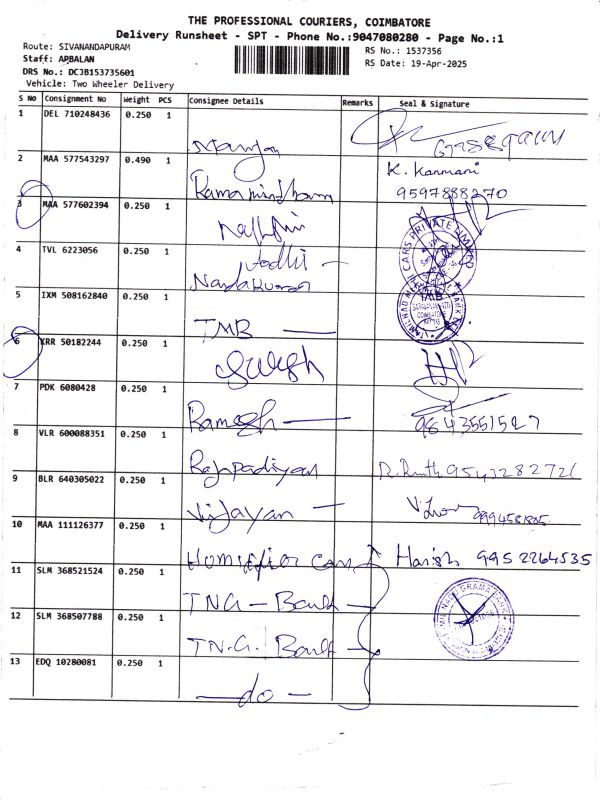 THE PROFESSIONAL COURIERS, COIMBATORE
Delivery Runsheet - SPT - Phone No.:9047080280 - Page No.:1
Route: SIVANANDAPURAM
RS No.: 1537356
Staff: APBALAN
RS Date: 19-Apr-2025
DRS No.: DCJB153735601
Vehicle: Two Wheeler Delivery
S No Consignment No Weight PCS Consignee Details Remarks Seal & Signature
1 DEL 710248436 0.250 1
2 MAA 577543297 0.490 1 K. Kanmani
9597888270
3 MAA 577602394 0.250 1
4 TVL 6223056 0.250 1
Nandakumar
5 IXM 508162840 0.250 1
TMB
6 KRR 50182244 0.250 1
Suresh
7 PDK 6080428 0.250 1
Ramesh 9843551527
8 VLR 600088351 0.250 1
Rajpadiyan 9543282726
9 BLR 640305022 0.250 1
Vijayan
10 MAA 111126377 0.250 1
Harish 9952264535
11 SLM 368521524 0.250 1
TNG - Bank
12 SLM 368507788 0.250 1
TN.G. Bank
13 EDQ 10280081 0.250 1
- do -
CARS PRIVATE LIMITED
TMB